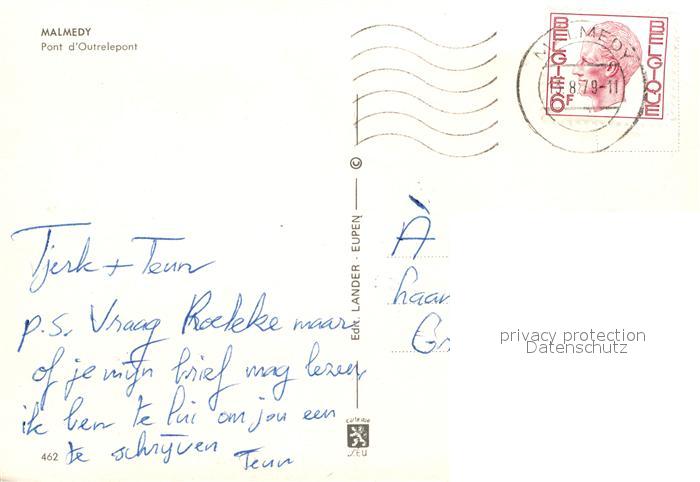 MALMEDY
Pont d'Outrelepont
BELGIE
BELGIQUE
6F
MALMEDY
8 79-11
© Edit. LANDER - EUPEN
À
haar
G
privacy protection
Datenschutz
Tjerk + Teun
p.s. Vraag Roelekke maar
of je mijn brief mag lezen,
ik ben te lui om jou een
te schrijven
Teun
462